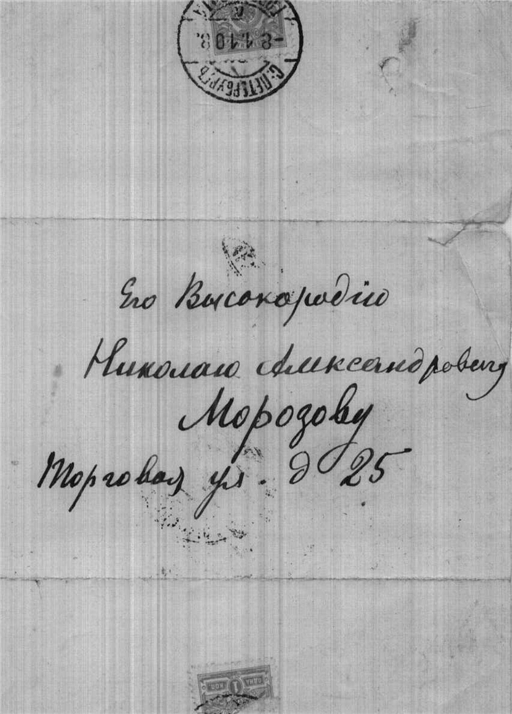 -8.1.10.8.
С.ПЕТЕРБУРГЪ
Его Высокородію
Николаю Александровичу
Морозову
Торговая ул. д 25
1